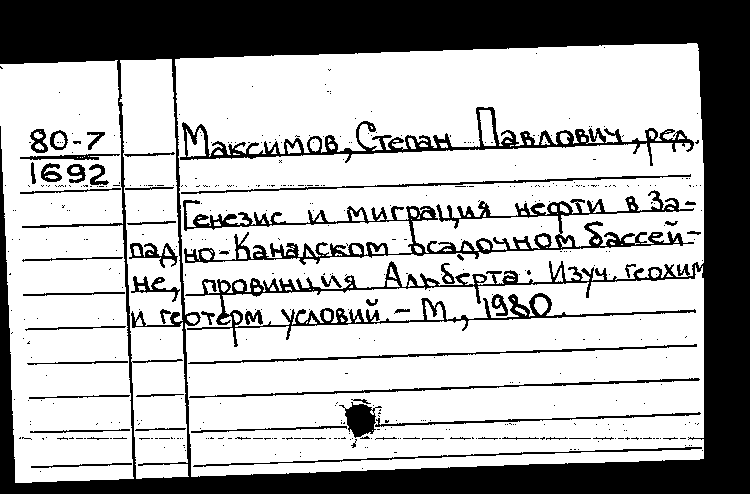 80-7
1692
Максимов, Степан Павлович, ред.
Генезис и миграция нефти в За-
падно-Канадском осадочном бассей-
не, провинция Альберта: Изуч. геохим
и геотерм. условий. - М., 1980.